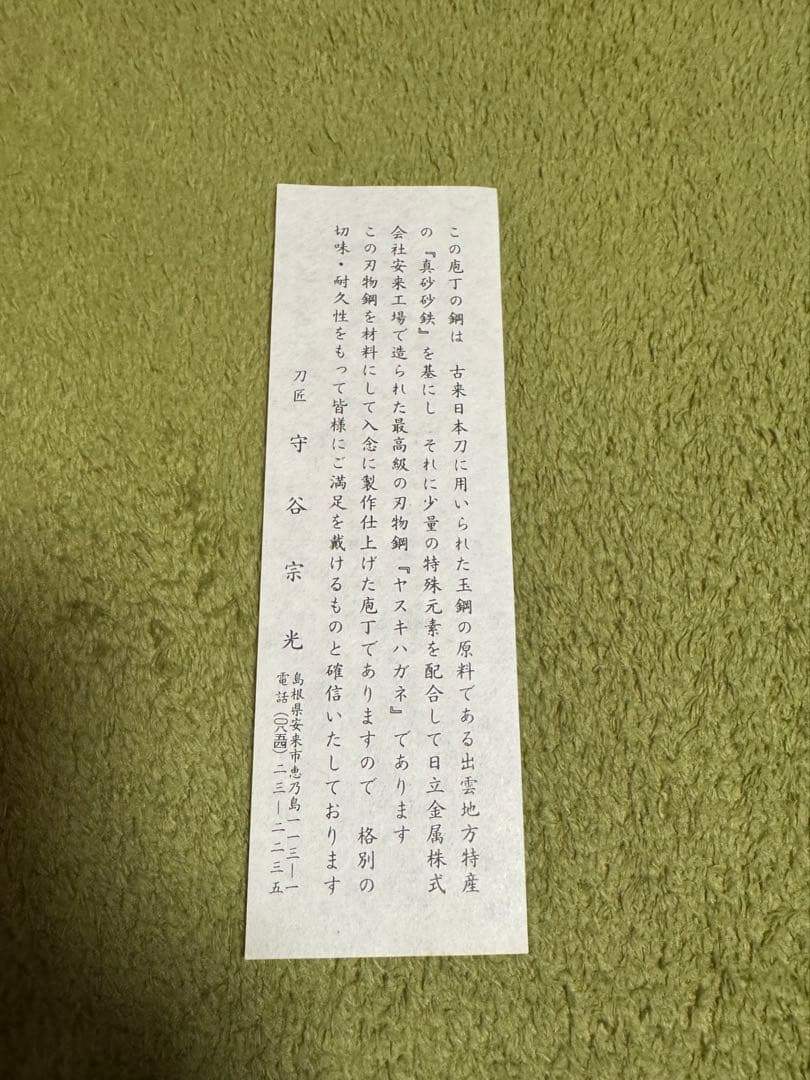 この庖丁の鋼は　古来日本刀に用いられた玉鋼の原料である出雲地方特産
の『真砂砂鉄』を基にし　それに少量の特殊元素を配合して日立金属株式
会社安来工場で造られた最高級の刃物鋼『ヤスキハガネ』であります
この刃物鋼を材料にして入念に製作仕上げた庖丁でありますので　格別の
切味・耐久性をもって皆様にご満足を戴けるものと確信いたしております
刀匠　守谷宗光
島根県安来市恵乃島一一三―一
電話（〇八五四）二三―二二三五